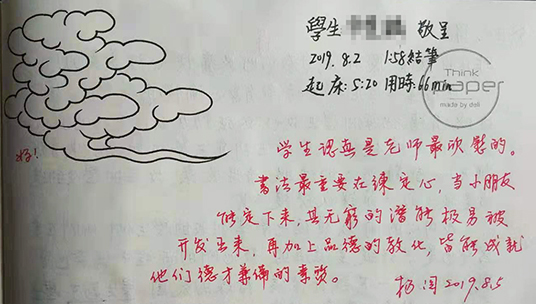 學生 敬呈
2019.8.2 1:58結筆
起床:5:20 用時:66min
Think
Paper
made by deli
好!
学生認真是老师最欣慰的。
書法最重要在練定心，当小朋友
能定下来，其无窮的潜能极易被
开发出来，再加上品德的教化，皆能成就
他们德才兼備的素质。
2019.8.5